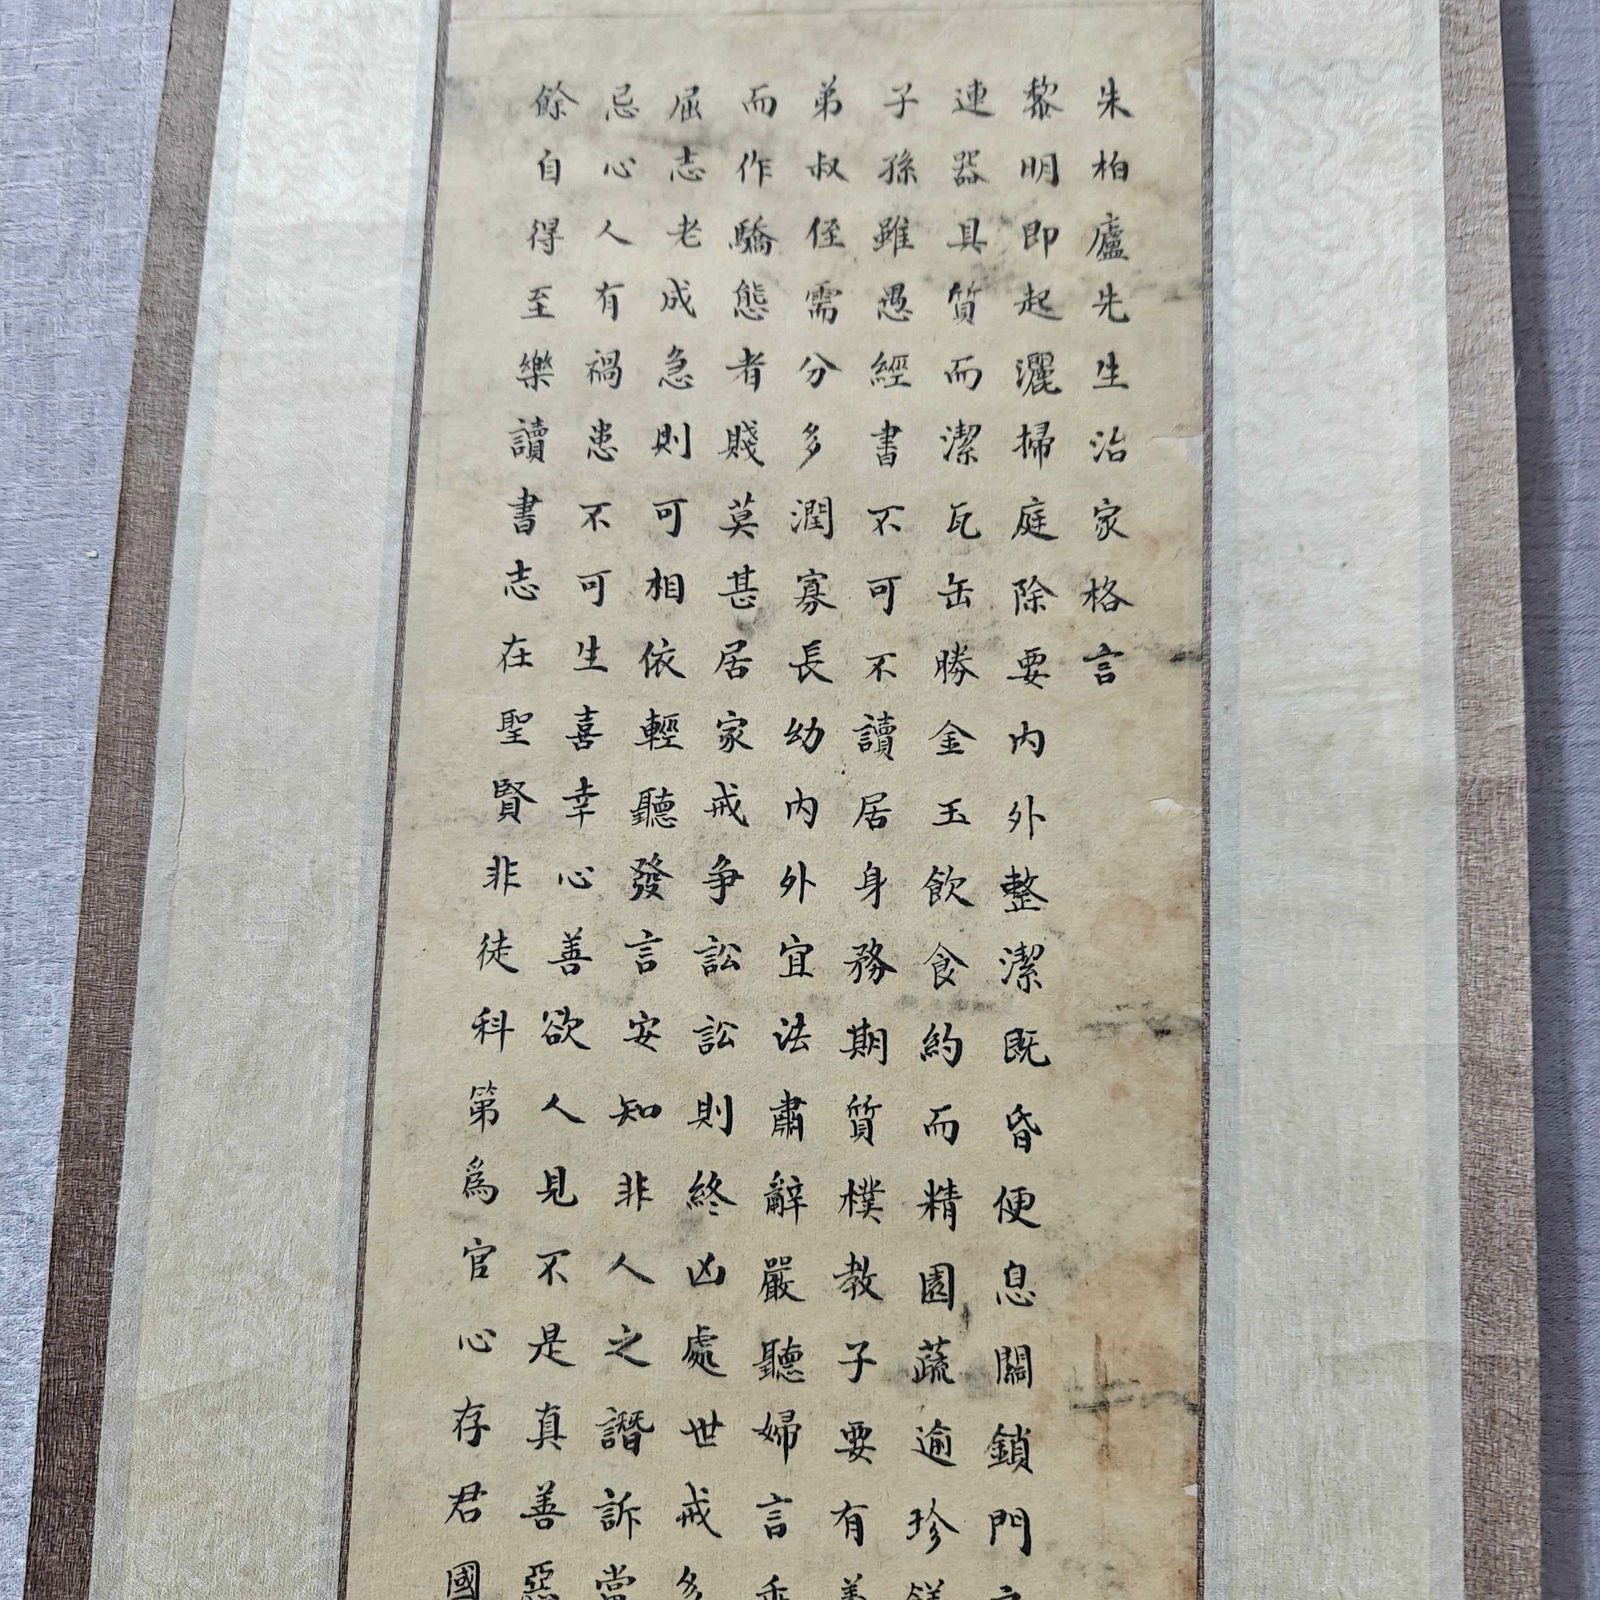 朱柏廬先生治家格言
黎明即起灑掃庭除要內外整潔既昏便息關鎖門
連器具質而潔瓦缶勝金玉飲食約而精園蔬逾珍
子孫雖愚經書不可不讀居身務期質樸教子要有
弟叔侄需分多潤寡長幼內外宜法肅辭嚴聽婦言
而作驕態者賤莫甚居家戒爭訟訟則終凶處世戒多
屈志老成急則可相依輕聽發言安知非人之譖訴當
忌心人有禍患不可生喜幸心善欲人見不是真善惡
餘自得至樂讀書志在聖賢非徒科第為官心存君國